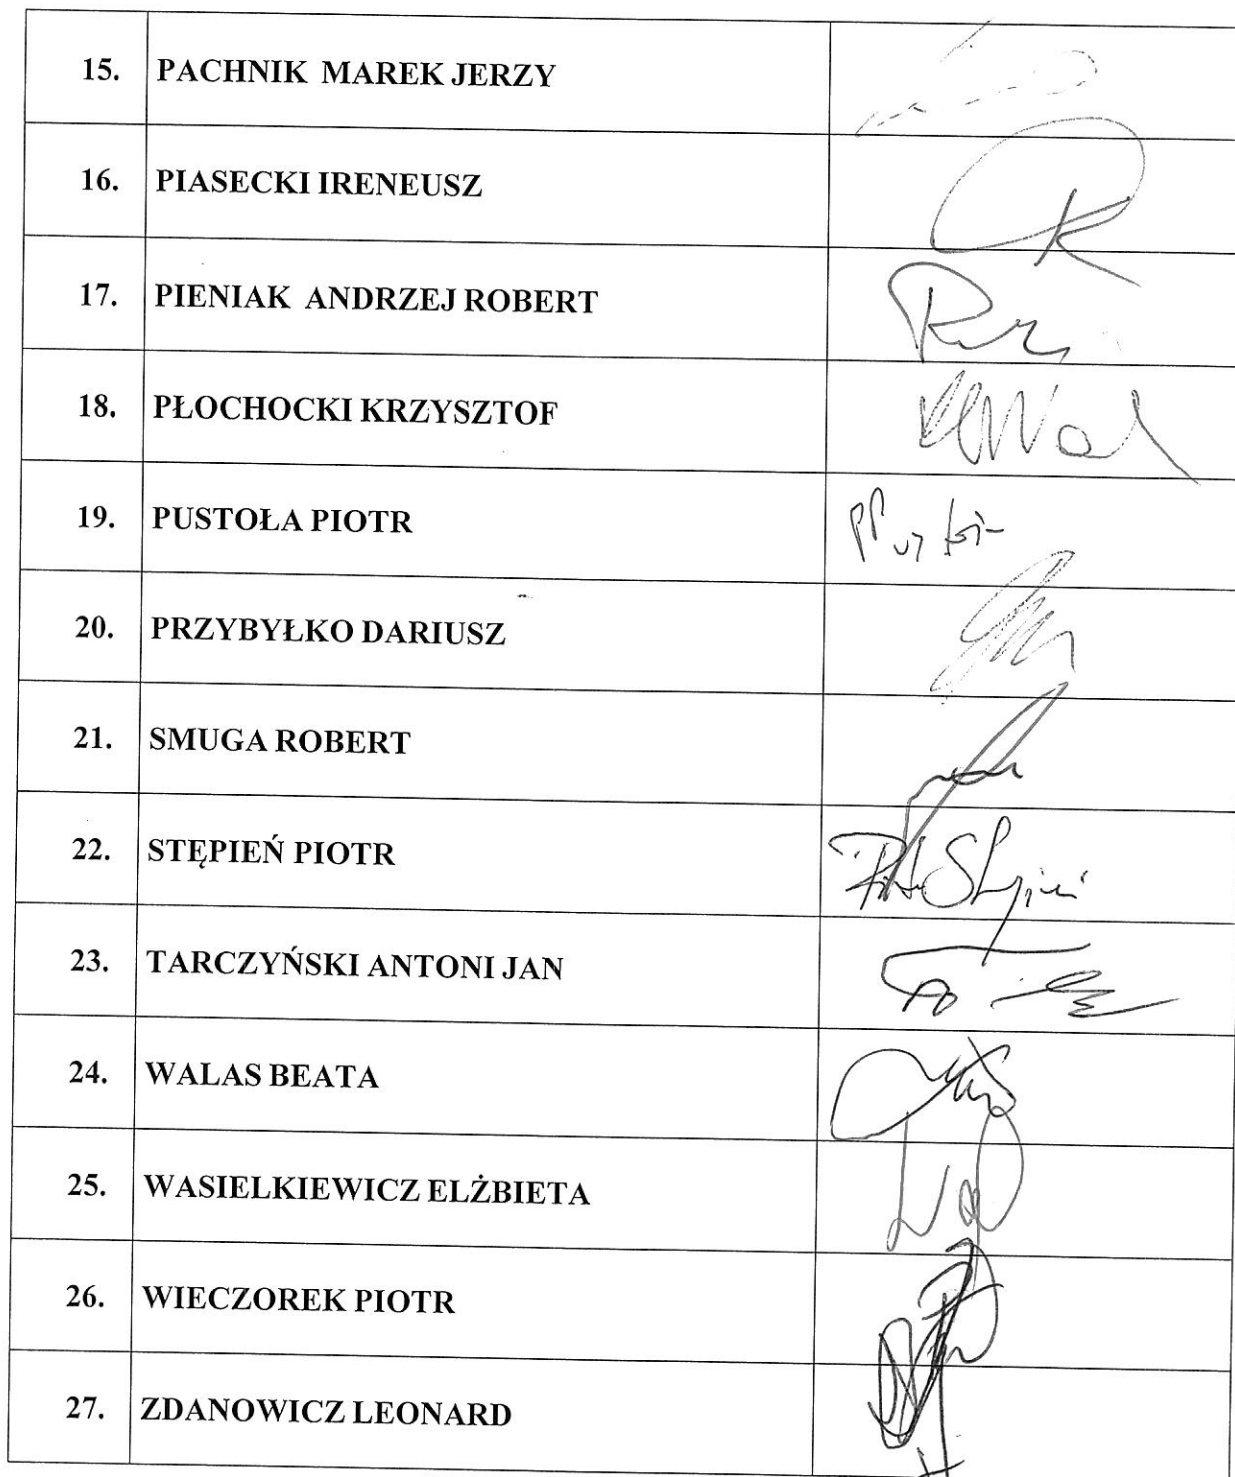 15. PACHNIK MAREK JERZY
16. PIASECKI IRENEUSZ
17. PIENIAK ANDRZEJ ROBERT
18. PŁOCHOCKI KRZYSZTOF
19. PUSTOŁA PIOTR
20. PRZYBYŁKO DARIUSZ
21. SMUGA ROBERT
22. STĘPIEŃ PIOTR
23. TARCZYŃSKI ANTONI JAN
24. WALAS BEATA
25. WASIELKIEWICZ ELŻBIETA
26. WIECZOREK PIOTR
27. ZDANOWICZ LEONARD